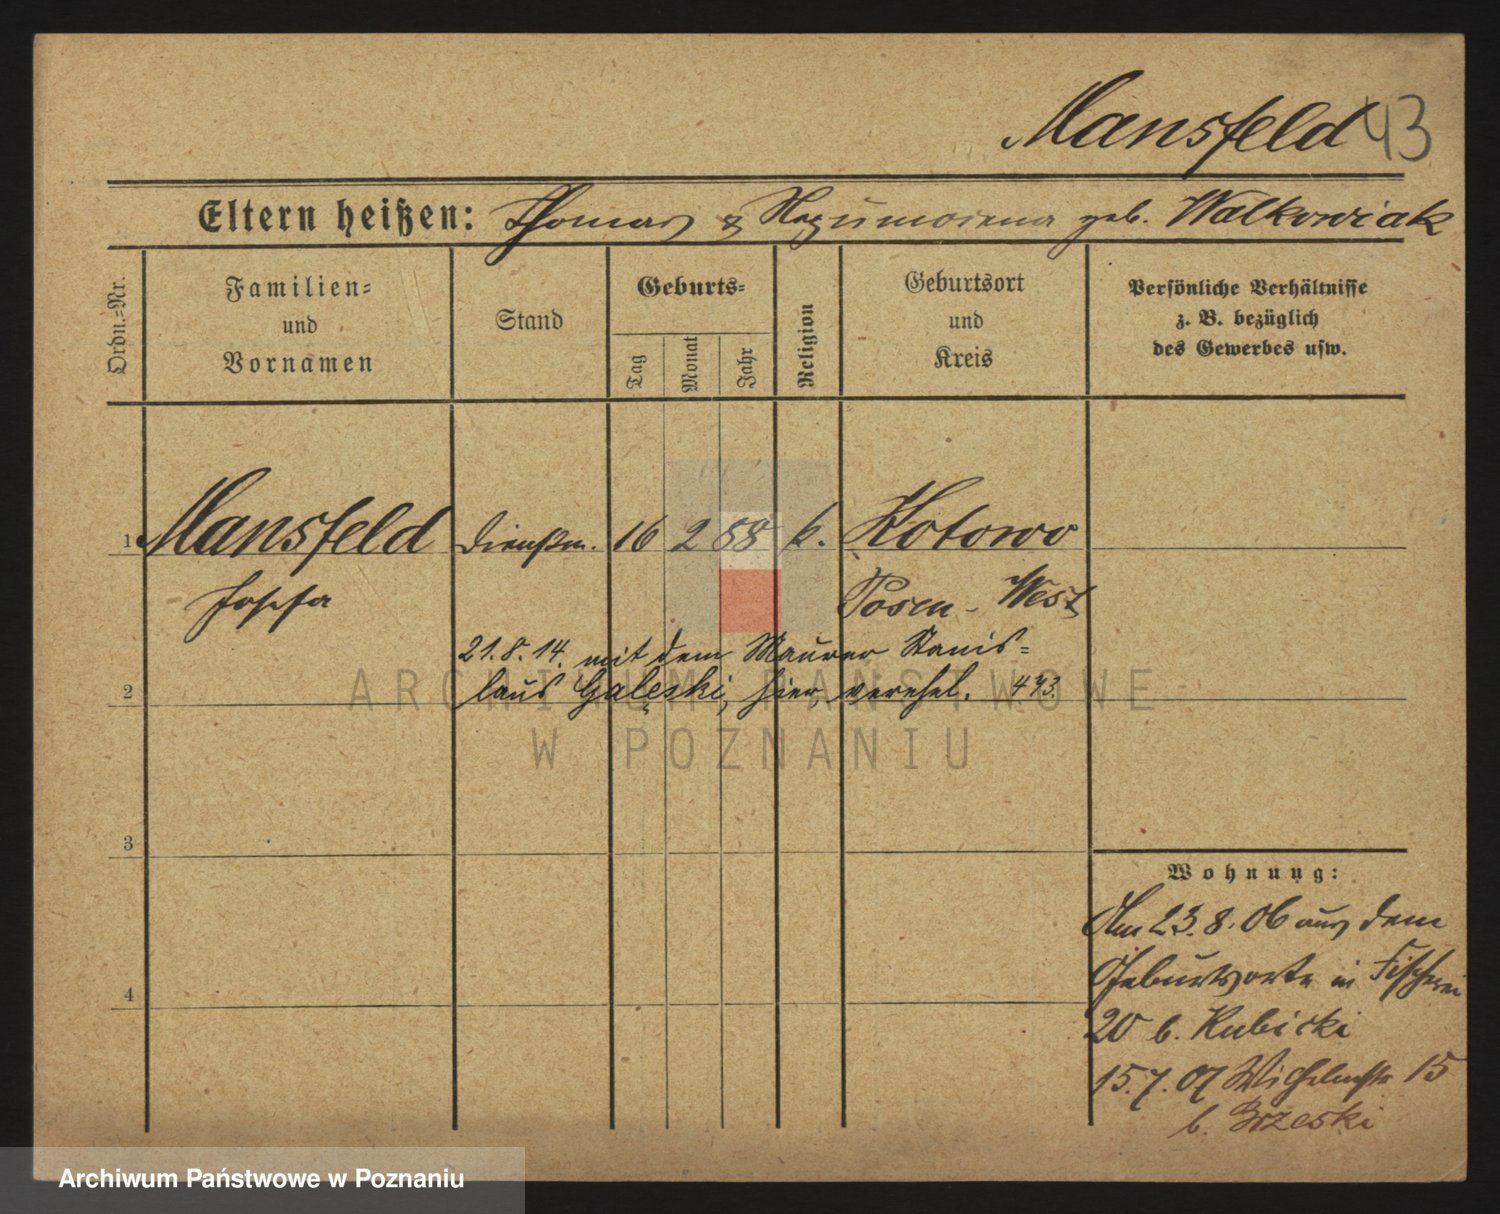 Mansfeld 43
Eltern heißen: Thomas & Nepumocena geb. Walkowiak
Ordn.-Nr.
Familien-
und
Vornamen
Stand
Geburts-
Tag
Monat
Jahr
Religion
Geburtsort
und
Kreis
Persönliche Verhältnisse
z. B. bezüglich
des Gewerbes usw.
1 Mansfeld dienstm. 16 2 88 k. Kotowo
Josefa Posen-West
21.8.14. mit dem Maurer Stanis-
2 laus Galęski, hier, verehel. 443.
3
Wohnung:
Am 23.8.06 aus dem
Geburtsorte in Fischerei
4
20 b. Kubicki
15.7.07 Wilhelmstr 15
b. Brzeski
ARCHIWUM PAŃSTWOWE
W POZNANIU
Archiwum Państwowe w Poznaniu